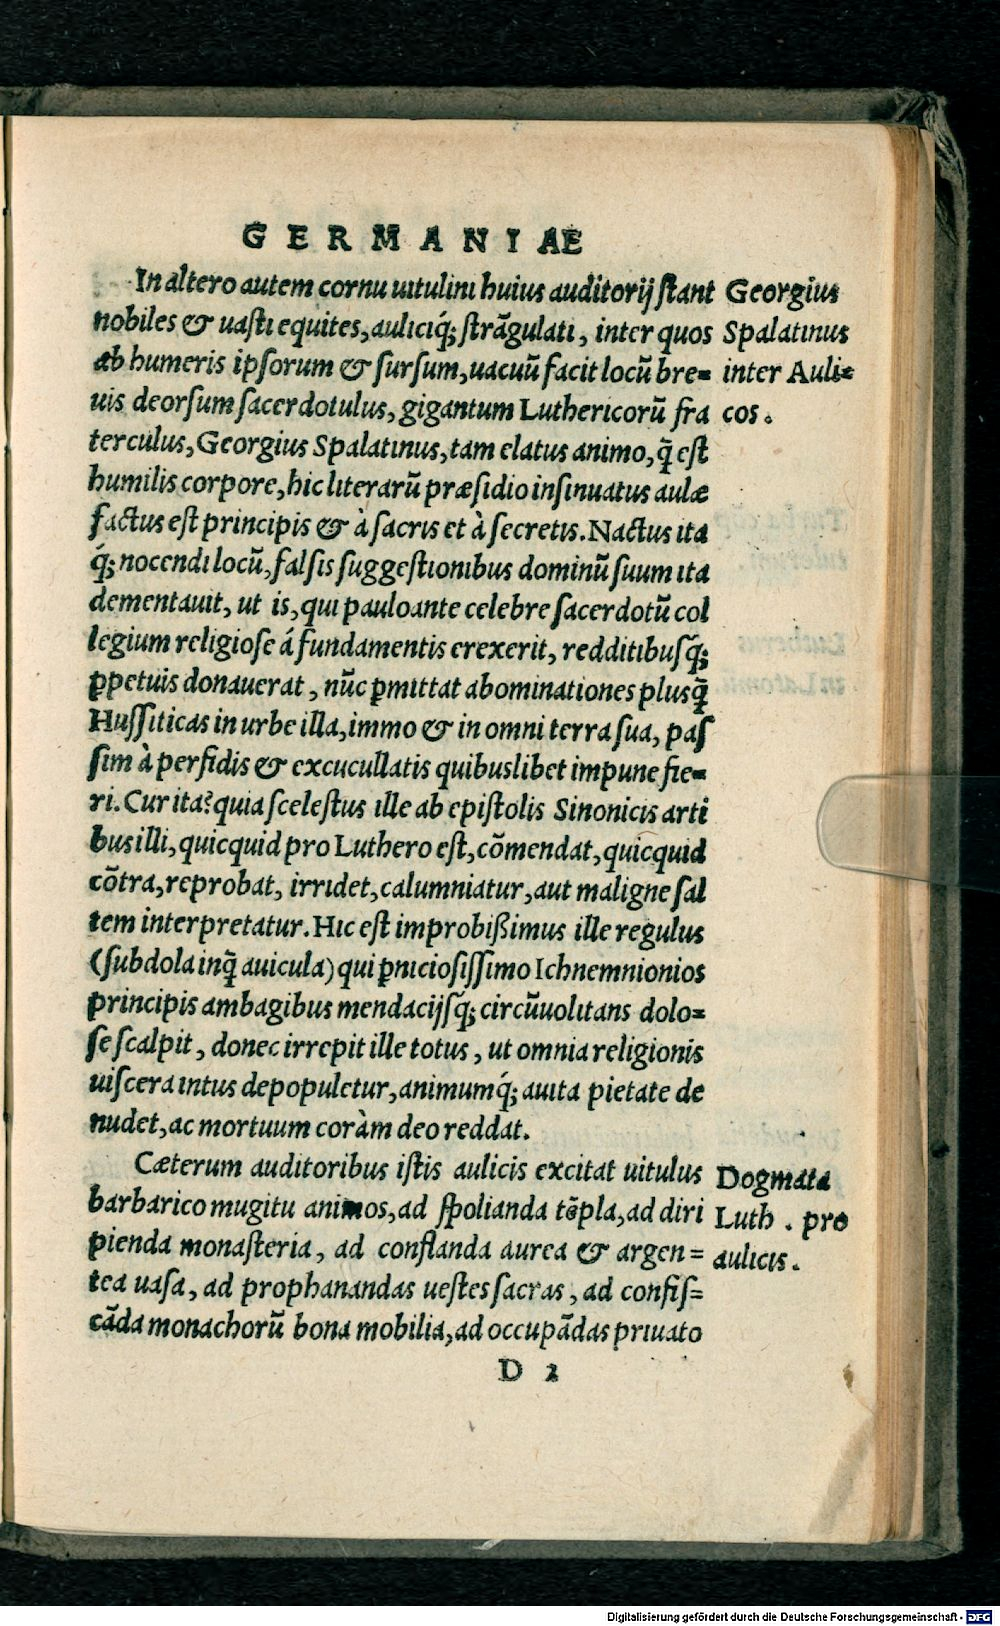 GERMANIAE
In altero autem cornu uitulini huius auditorij stant
nobiles & uasti equites, auliciq́; strãgulati, inter quos
ab humeris ipsorum & sursum, uacuũ facit locũ bre=
uis deorsum sacerdotulus, gigantum Luthericorũ fra
terculus, Georgius Spalatinus, tam elatus animo, q̃ est
humilis corpore, hic literarũ præsidio insinuatus aulæ
factus est principis & à sacris et à secretis. Nactus ita
q́; nocendi locũ, falsis suggestionibus dominũ suum ita
dementauit, ut is, qui pauloante celebre sacerdotũ col
legium religiose á fundamentis erexerit, redditibusq́;
ꝑpetuis donauerat, nũc ꝑmittat abominationes plusq̃
Hussiticas in urbe illa, immo & in omni terra sua, pas
sim à perfidis & excucullatis quibuslibet impune fie=
ri. Cur ita? quia scelestus ille ab epistolis Sinonicis arti
bus illi, quicquid pro Luthero est, cõmendat, quicquid
cõtra, reprobat, irridet, calumniatur, aut maligne sal
tem interpretatur. Hic est improbißimus ille regulus
(subdola inq̃ auicula) qui ꝑniciosissimo Ichnemnionios
principis ambagibus mendacijsq́; circũuolitans dolo=
se scalpit, donec irrepit ille totus, ut omnia religionis
uiscera intus depopuletur, animumq́; auita pietate de
nudet, ac mortuum coràm deo reddat.
Cæterum auditoribus istis aulicis excitat uitulus
barbarico mugitu animos, ad spolianda tẽpla, ad diri
pienda monasteria, ad conflanda aurea & argen=
tea uasa, ad prophanandas uestes sacras, ad confis=
cãda monachorũ bona mobilia, ad occupãdas priuato
D 2
Georgius
Spalatinus
inter Auli=
cos.
Dogmata
Luth. pro
aulicis.
Digitalisierung gefördert durch die Deutsche Forschungsgemeinschaft - DFG